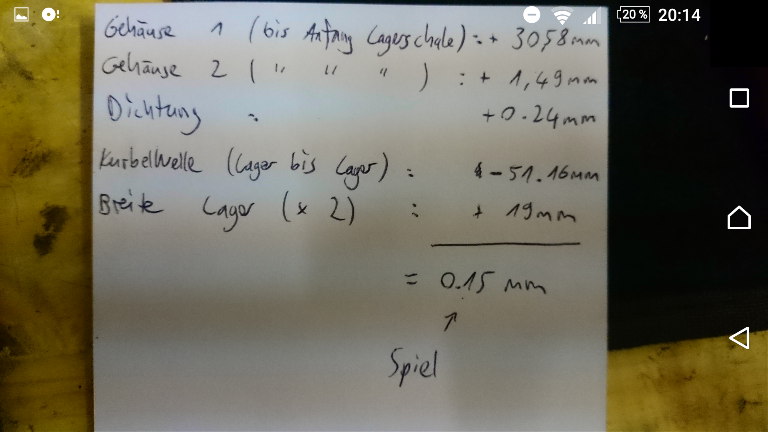 20 % 20:14
Gehäuse 1 (bis Anfang Lagerschale) : + 30,58mm
Gehäuse 2 ( " " " ) : + 1,49mm
Dichtung : +0.24mm
Kurbelwelle (Lager bis Lager) : -51.16mm
Breite Lager (x 2) : + 19mm
= 0.15 mm
↑
Spiel